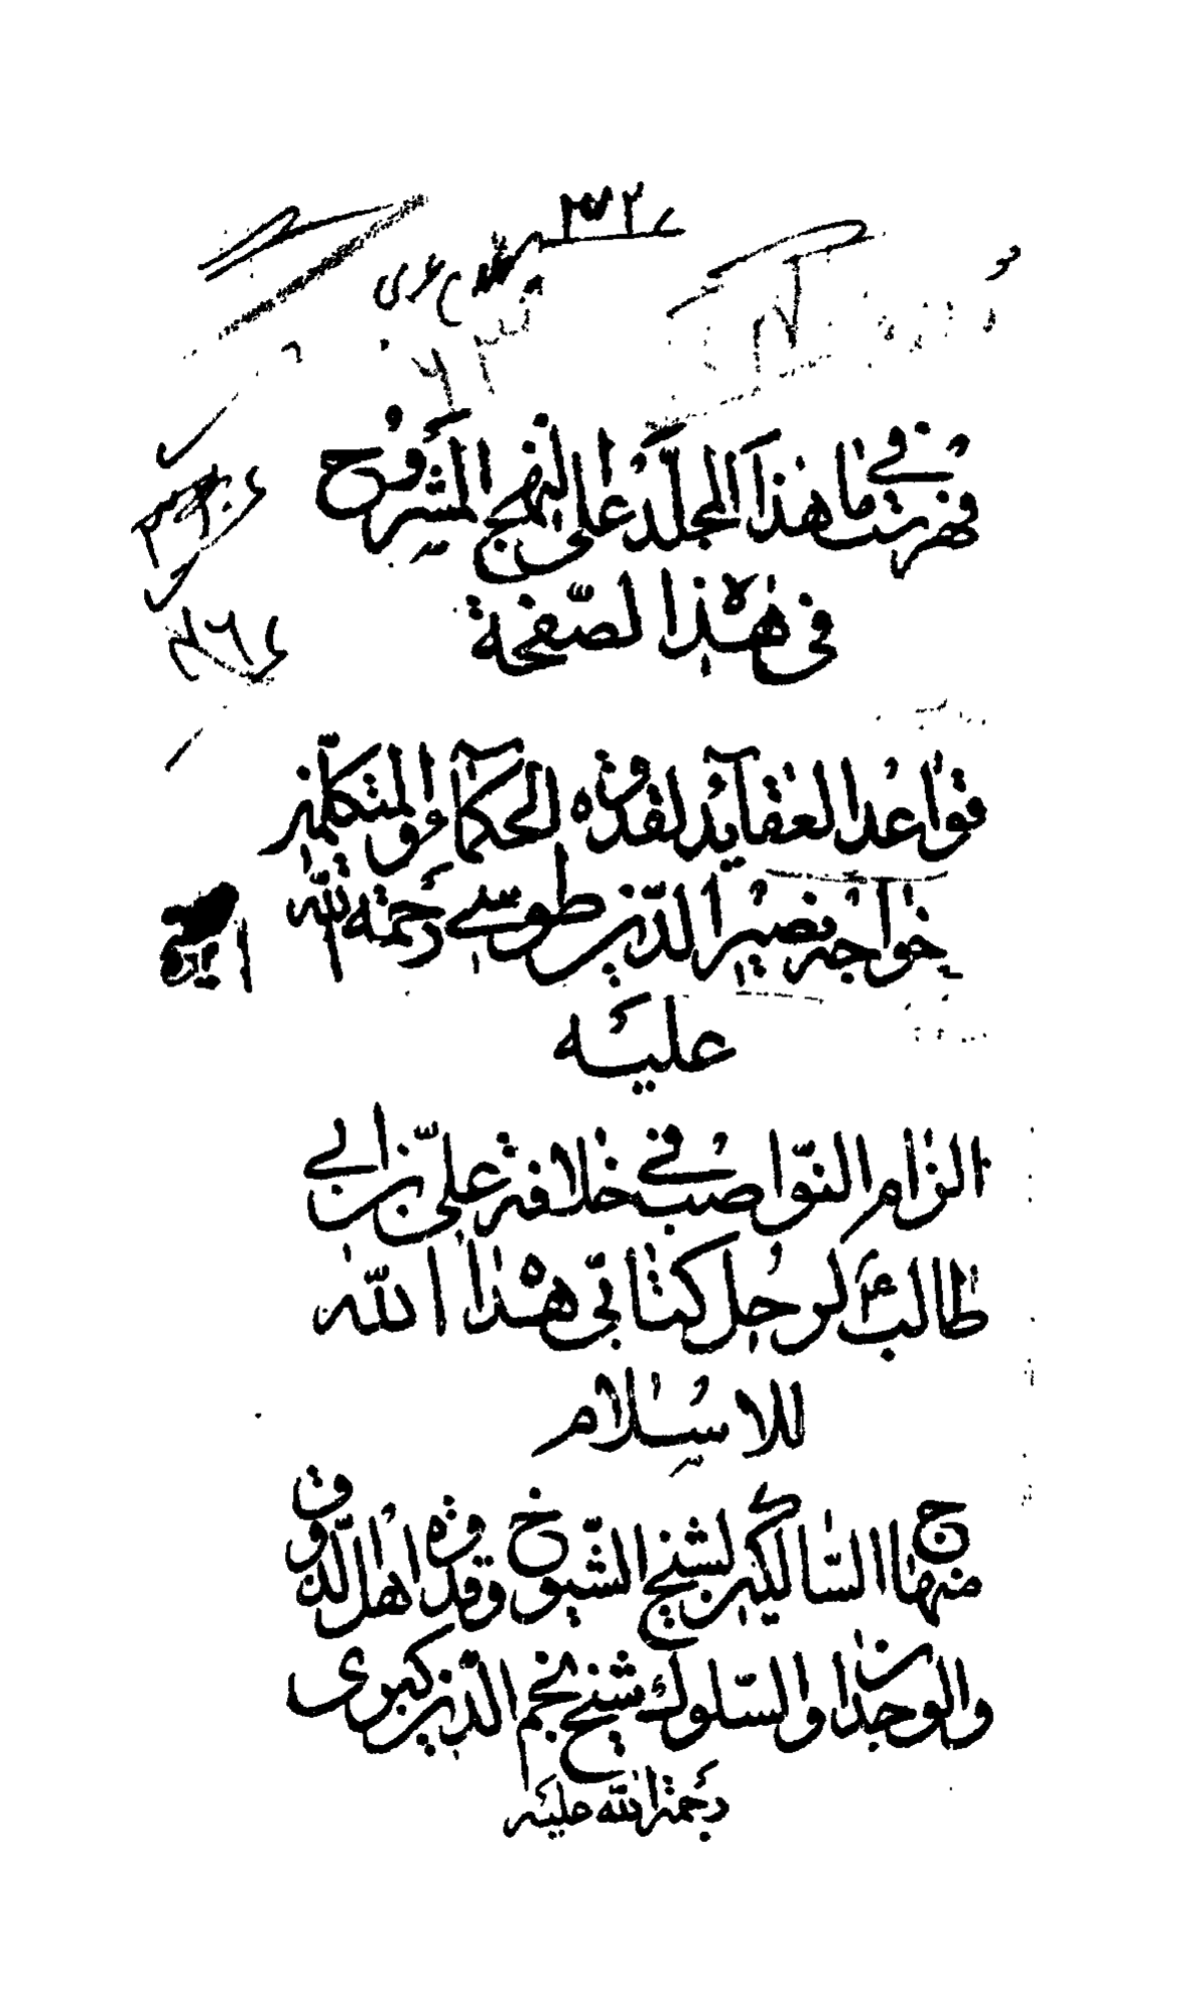 فهرست ما في هذا المجلد على النهج المشروح
في هذه الصفحة
قواعد العقايد لقدوة الحكمآء والمتكلمين
خواجه نصير الدين طوسي رحمة الله
عليه
الزام النواصب في خلافة علي بن ابي
طالب ع لرجل كتابي هداه الله
للاسلام
منهاج السالكين لشيخ الشيوخ وقدوة اهل الذوق
والوجدان والسلوك شيخ نجم الدين كبرى
رحمة الله عليه